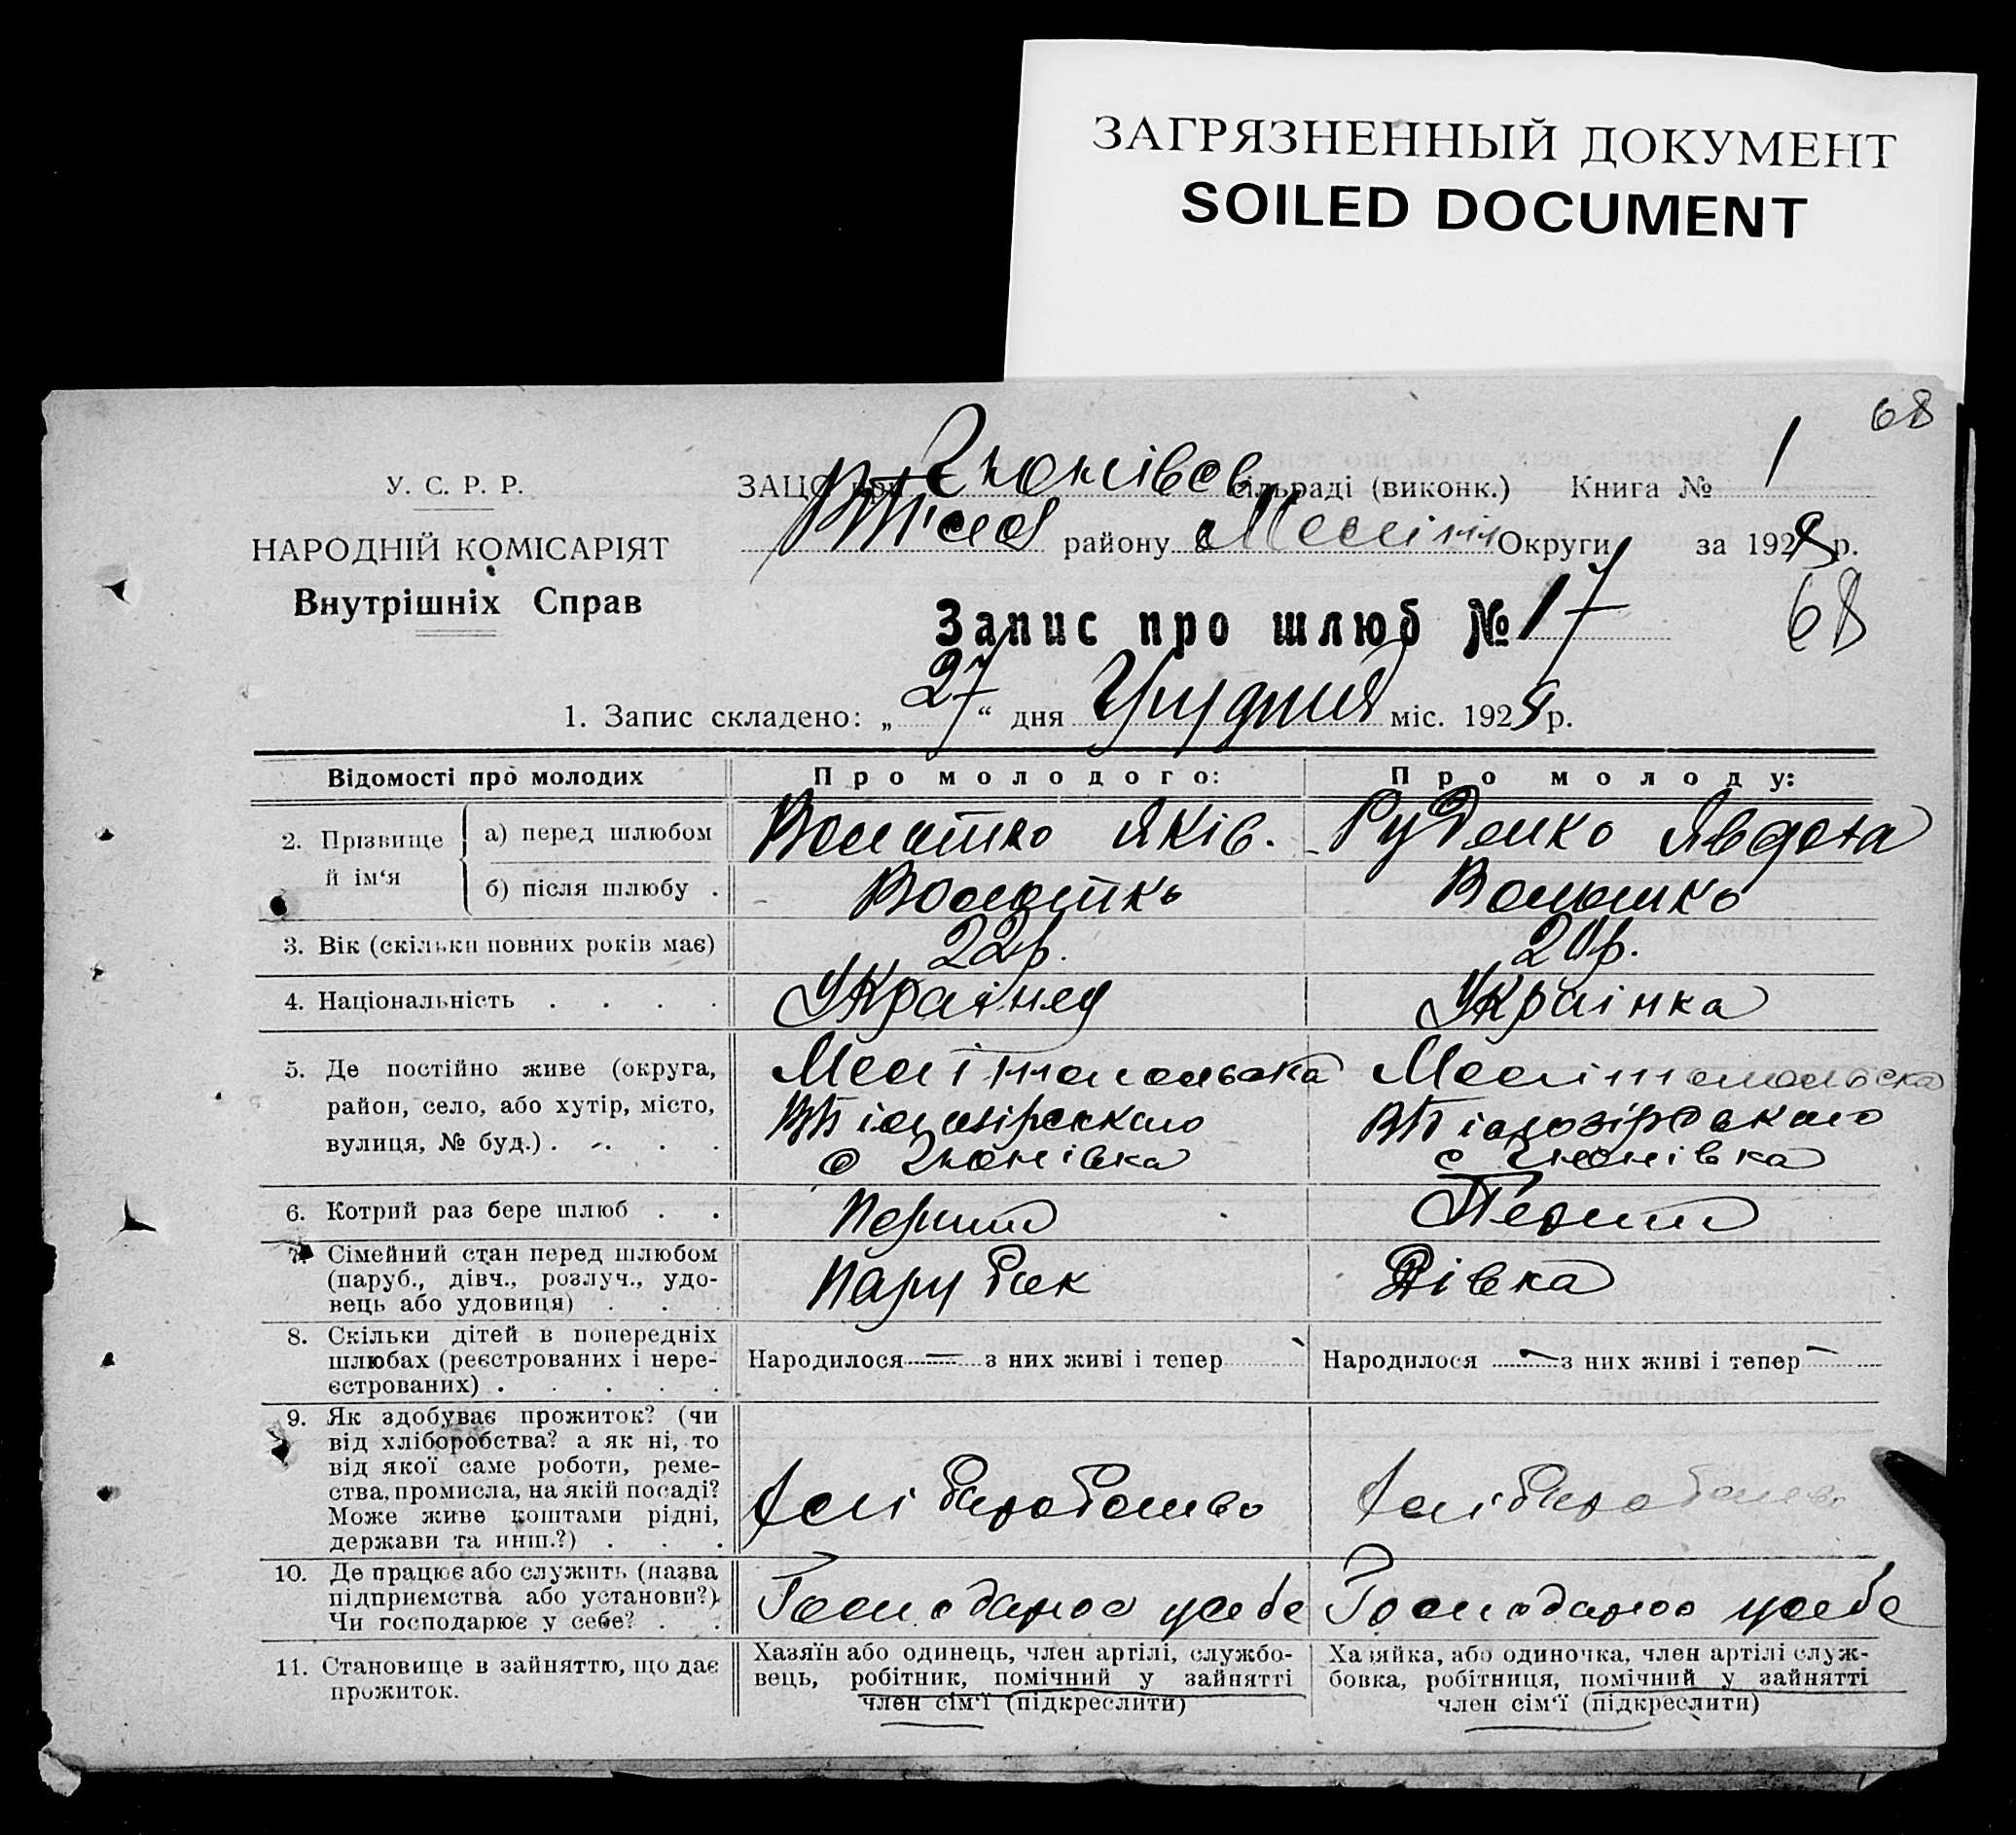 ЗАГРЯЗНЕННЫЙ ДОКУМЕНТ
SOILED DOCUMENT
68
У. С. Р. Р.
НАРОДНІЙ КОМІСАРІЯТ
Внутрішніх Справ
ЗАЦС при сільраді (виконк.) Книга № 1
району Меліт Округи за 1928 р.
Запис про шлюб № 17
68
1. Запис складено: „27“ дня Грудня міс. 1928 р.
Відомості про молодих
Про молодого:
Про молоду:
2. Прізвище й ім‘я
а) перед шлюбом
Яків.
Руденко Явдоха
б) після шлюбу .
3. Вік (скільки повних років має)
22 р.
20 р.
4. Національність . . . .
Українец
Українка
5. Де постійно живе (округа,
район, село, або хутір, місто,
вулиця, № буд.) . . . .
Мелітопольська
Мелітопольська
6. Котрий раз бере шлюб . .
Перший
Перший
7. Сімейний стан перед шлюбом
(паруб., дівч., розлуч., удо-
вець або удовиця) . . .
Парубок
Дівка
8. Скільки дітей в попередніх
шлюбах (реєстрованих і нере-
єстрованих) . . . . .
Народилося — з них живі і тепер
Народилося — з них живі і тепер —
9. Як здобуває прожиток? (чи
від хліборобства? а як ні, то
від якої саме роботи, реме-
ства, промисла, на якій посаді?
Може живе коштами рідні,
держави та инш.?) . . .
Хліборобство
Хліборобство
10. Де працює або служить (назва
підприємства або установи?).
Чи господарює у себе? . .
Господарює у себе
Господарює у себе
11. Становище в зайняттю, що дає
прожиток.
Хазяїн або одинець, член артілі, службо-
вець, робітник, помічний у зайнятті
член сім‘ї (підкреслити)
Хазяйка, або одиночка, член артілі служ-
бовка, робітниця, помічний у зайнятті
член сім‘ї (підкреслити)